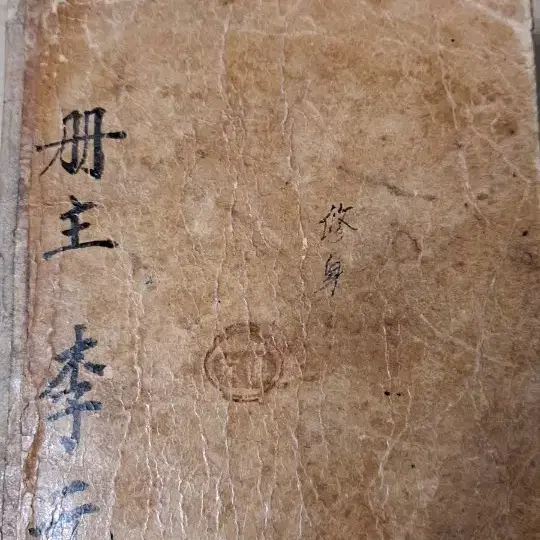 修身
册主 李